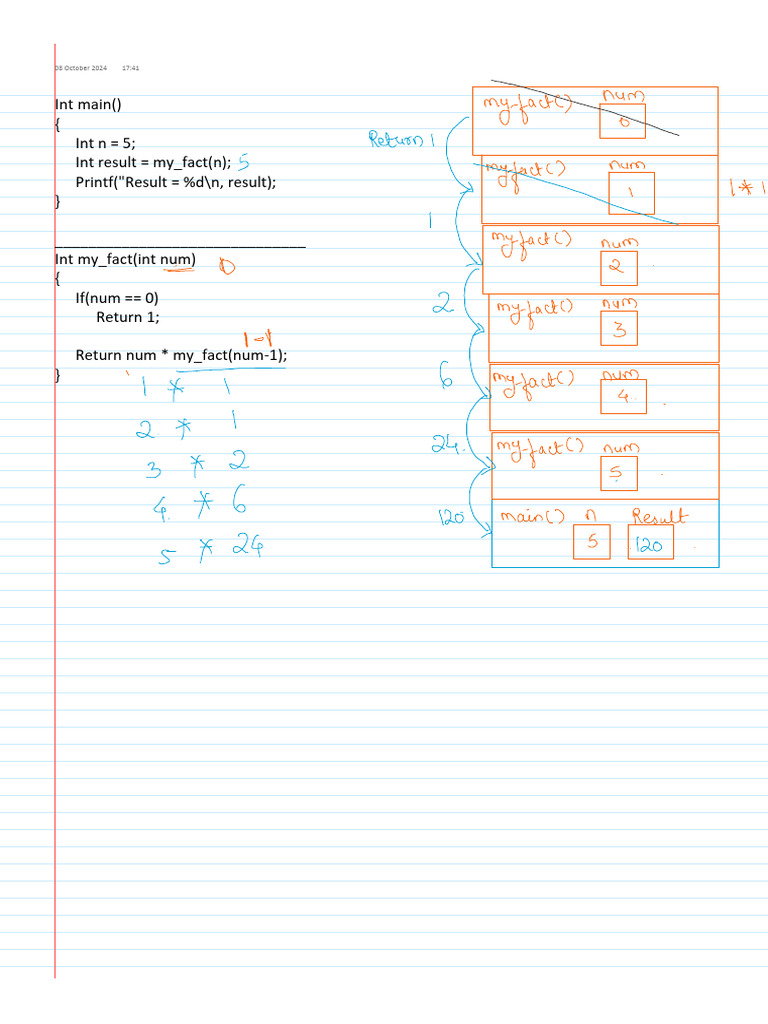 08 October 2024 17:41
Int main()
{
Int n = 5;
Int result = my_fact(n); 5
Printf("Result = %d\n, result);
}
Int my_fact(int num) 0
{
If(num == 0)
Return 1;
1-1
Return num * my_fact(num-1);
}
1 * 1
2 * 1
3 * 2
4 * 6
5 * 24
my-fact() num
0
Return 1
my-fact() num
1
1 * 1
1
my-fact() num
2
2
my-fact() num
3
6
my-fact() num
4
24
my-fact() num
5
120
main() n Result
5 120